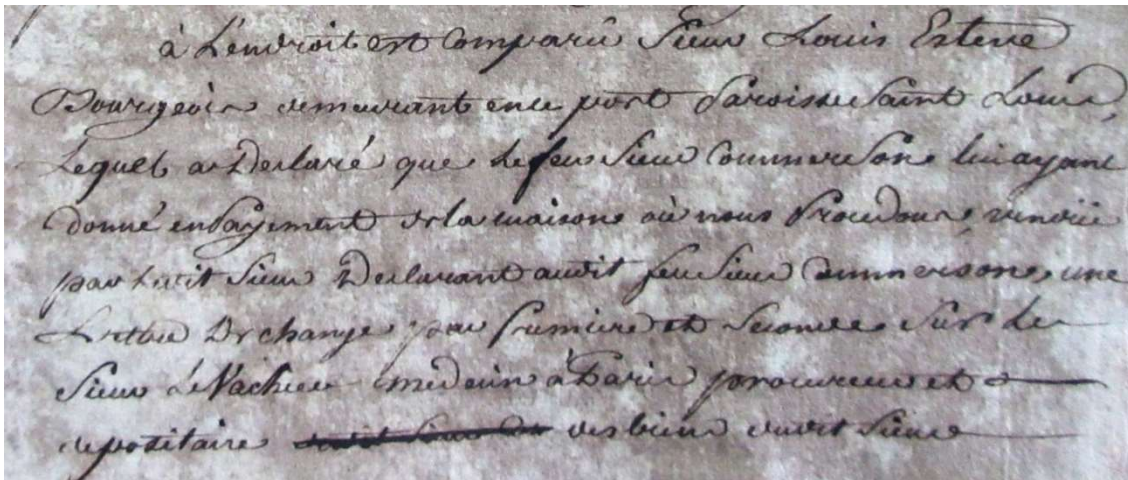 à Lendroit est Comparu Sieur Louis Esteve
Bourgeois demeurant en ce port Paroisse Saint Louis
Lequel a Declaré que le feu Sieur Commerson lui ayant
donné en Payement de la maison où nous Procedons, vendüe
par ledit Sieur Declarant audit feu Sieur Commerson, une
Lettre De change par Premiere et Seconde Sur le
Sieur Le Vacher medecin à Paris procureur et
depositaire des biens dudit Sieur